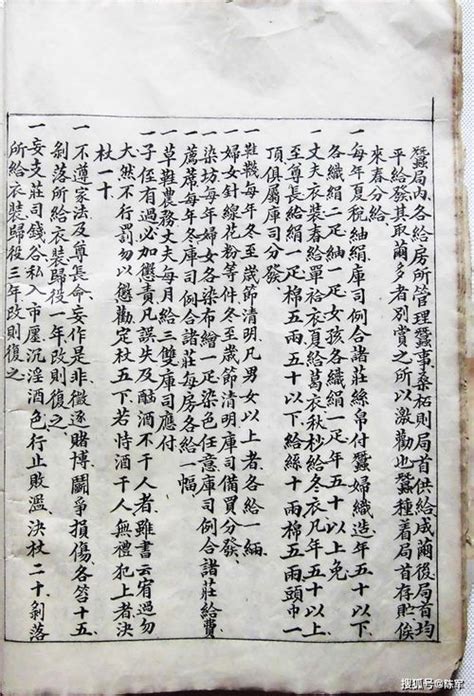 蠶局內各給房所管理蠶事桑柘則局首供給成繭後局首均
平給發其取繭多者別賞之所以激勸也蠶種着局首存貯候
來春分給
一每年夏稅紬絹庫司例合諸莊絲帛付蠶婦織造年五十以下
各織絹二疋紬一疋女孩各織絹一疋年五十以上免
一丈夫衣裝春給單袷衣夏給葛衣秋杪給冬衣凡年五十以上
至尊長給絹一疋棉五兩五十以下給絲十兩棉五兩頭巾一
頂俱屬庫司分發
一鞋靸每年冬至歲節清明凡男女以上者各給一緉
一婦女針線花粉等件冬至歲節清明庫司備買分發
一染坊每年婦女各染布繒一疋染色任意庫司例合諸莊給費
一薦蓆每年冬庫司例合諸莊每房各給一幅
一草鞋農務丈夫每月給三雙庫司應付
一子侄有過必加懲責凡誤失及酗酒不干人者雖書云宥過勿
大然不行罰勿以懲勸定杖五下若恃酒干人無禮犯上者決
杖一十
一不遵家法及尊長命妄作是非微逐賭博鬭爭損傷各笞十五
剝落所給衣裝歸役一年改則復之
一妄支莊司錢谷私入市廛沉淫酒色行止敗濫決杖二十剝落
所給衣裝歸役三年改則復之
搜狐号@陈军